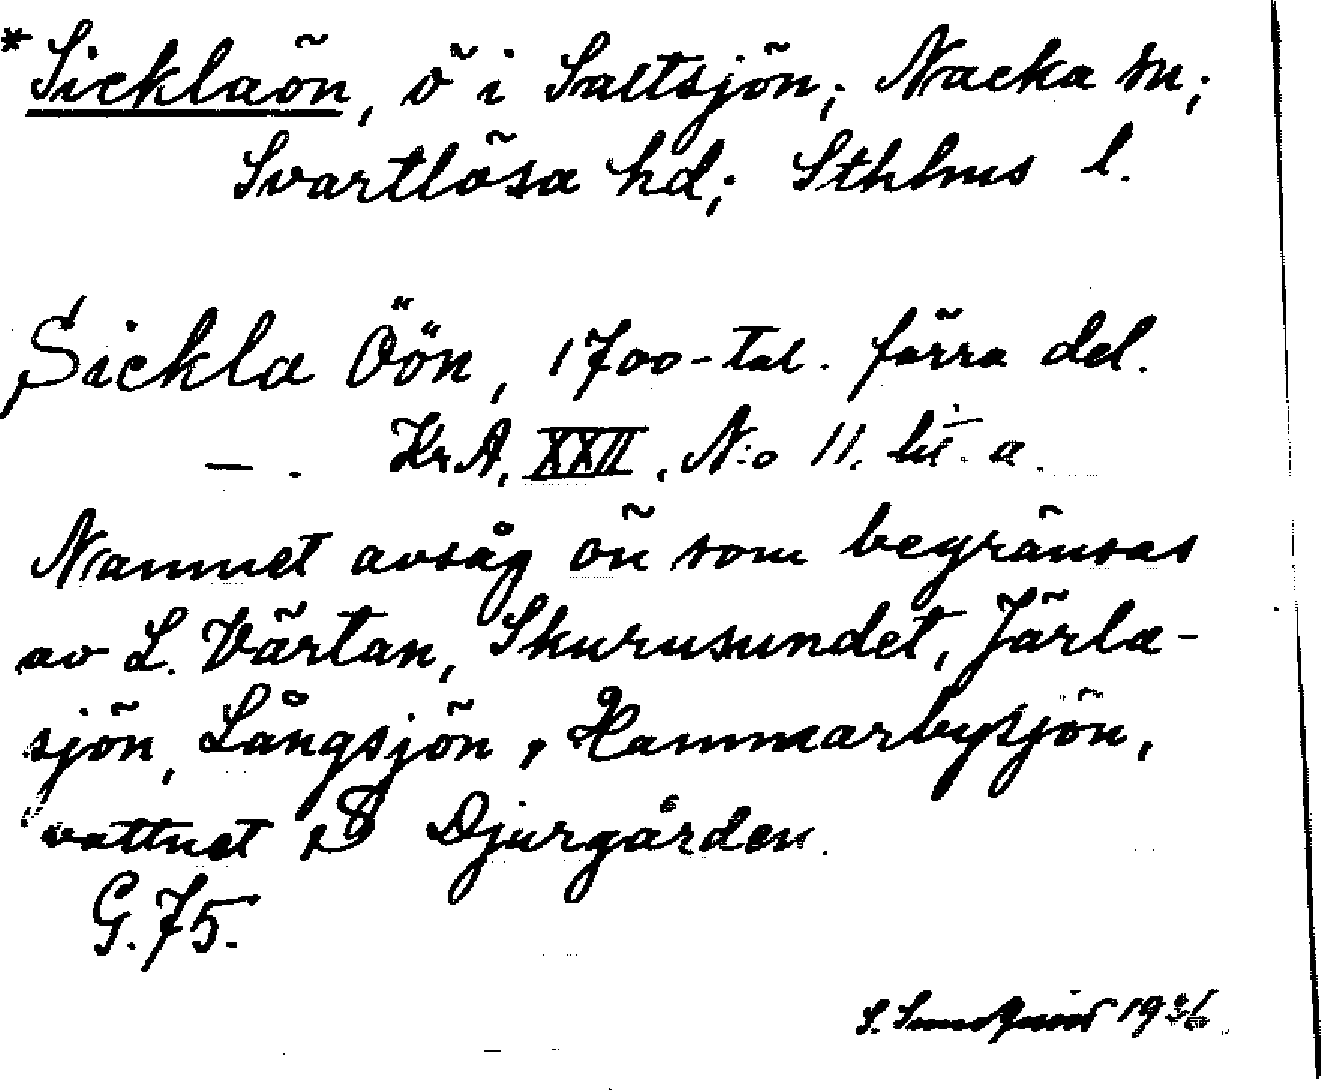 *Sicklaön, ö i Saltsjön; Nacka sn;
Svartlösa hd; Sthlms l.
Sickla Öön, 1700-tal. förra del.
— . Kr.A. XXII. N:o 11. lit. a.
Namnet avsåg ön som begränsas
av L. Värtan, Skurusundet, Järla-
sjön, Långsjön, Hammarbysjön,
vattnet S Djurgården.
G.75.
S. 1936.